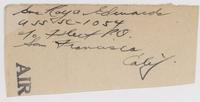 Kaya Edwards
ASS SC-1054
c/o Fleet P.O.
San Francisco
Calif.
AIR